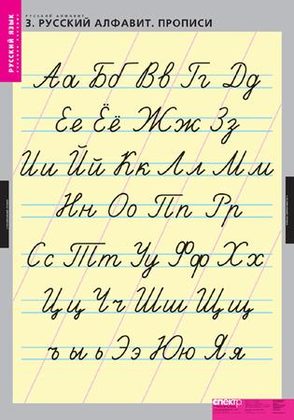 РУССКИЙ ЯЗЫК
РУССКИЙ АЛФАВИТ.
3. РУССКИЙ АЛФАВИТ. ПРОПИСИ
Аа Бб Вв Гг Дд
Ее Ёё Жж Зз
Ии Йй Кк Лл Мм
Нн Оо Пп Рр
Сс Тт Уу Фф Хх
Цц Чч Шш Щщ
ъ ы ь Ээ Юю Яя
спектр